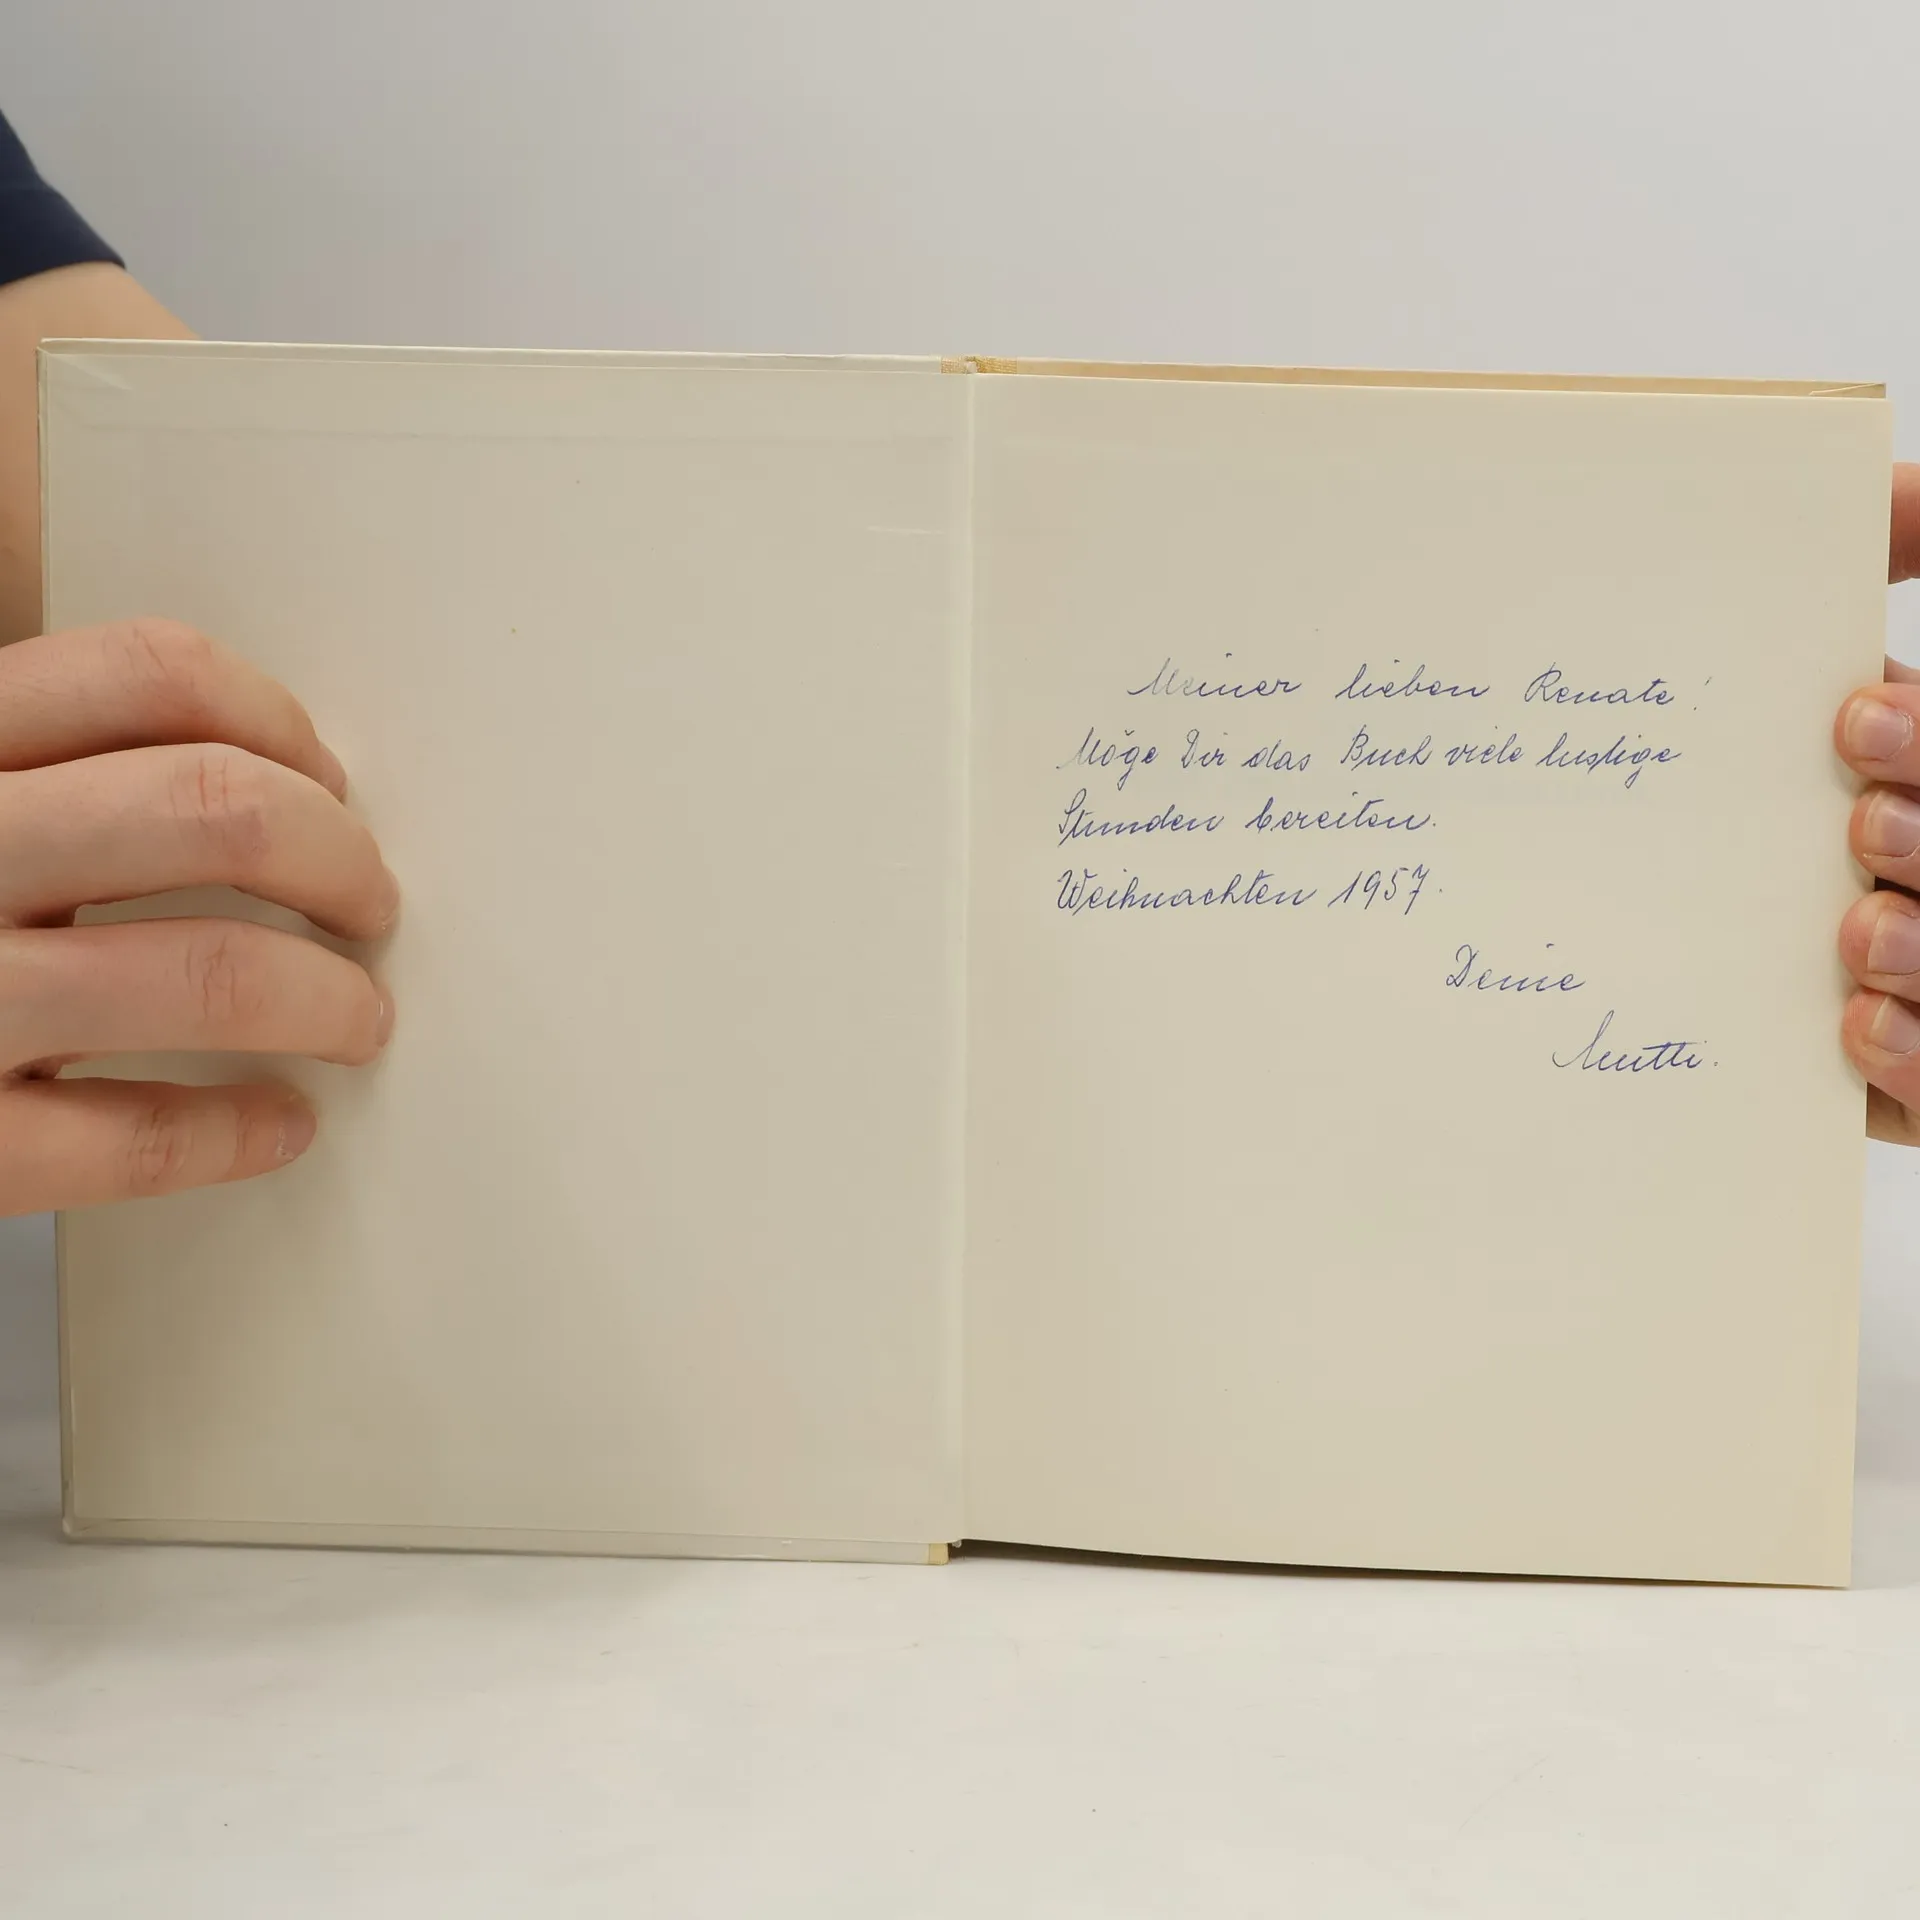 Meiner lieben Renate!
Möge Dir das Buch viele lustige
Stunden bereiten.
Weihnachten 1957.
Deine
Mutti.